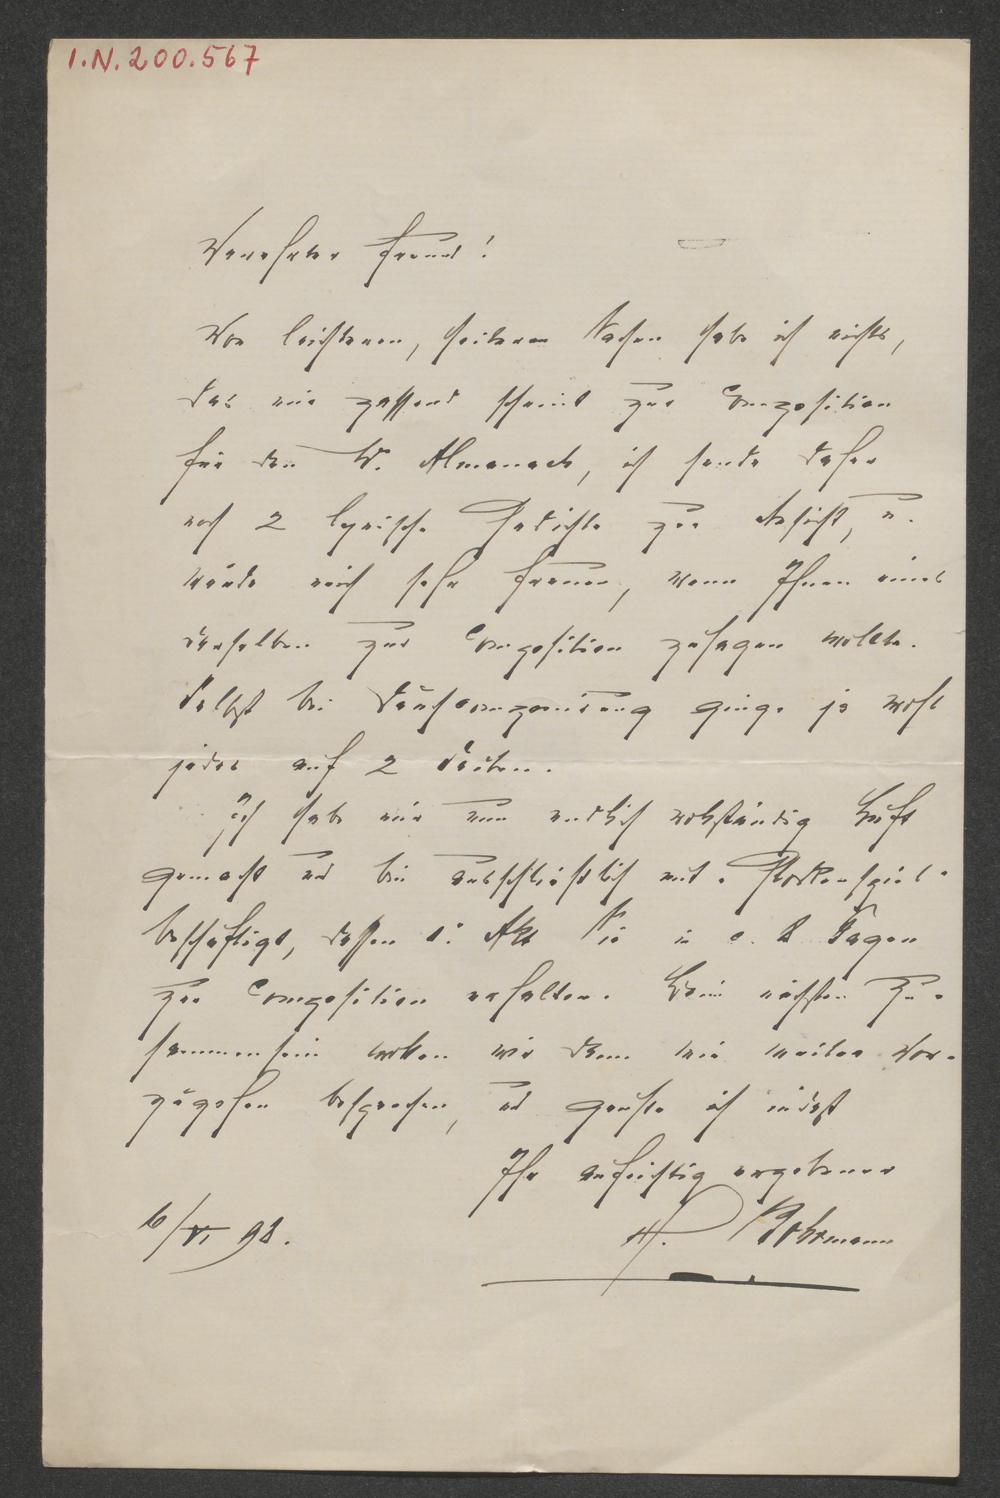 I.N. 200.567
Verehrter Freund!
Von leichteren, heiteren Sachen habe ich nichts,
das mir passend scheint zur Composition
für den W. Almanach, ich sende daher
noch 2 lyrische Gedichte zur Ansicht, u.
würde mich sehr freuen, wenn Ihnen eines
derselben zur Composition zusagen wollte.
Selbst bei Durchcomponirung ginge ja wohl
jedes auf 2 Seiten.
Ich habe mir nun endlich vollständig Luft
gemacht und bin ausschließlich mit Glockenspiel
beschäftigt, dessen 1. Akt Sie in c. 8 Tagen
zur Composition erhalten. Beim nächsten Zu-
sammensein wollen wir dann wie weiter vor-
zugehen besprechen, und grüße ich indeß
Ihr aufrichtig ergebener
6/VI 98. H. Bohrmann